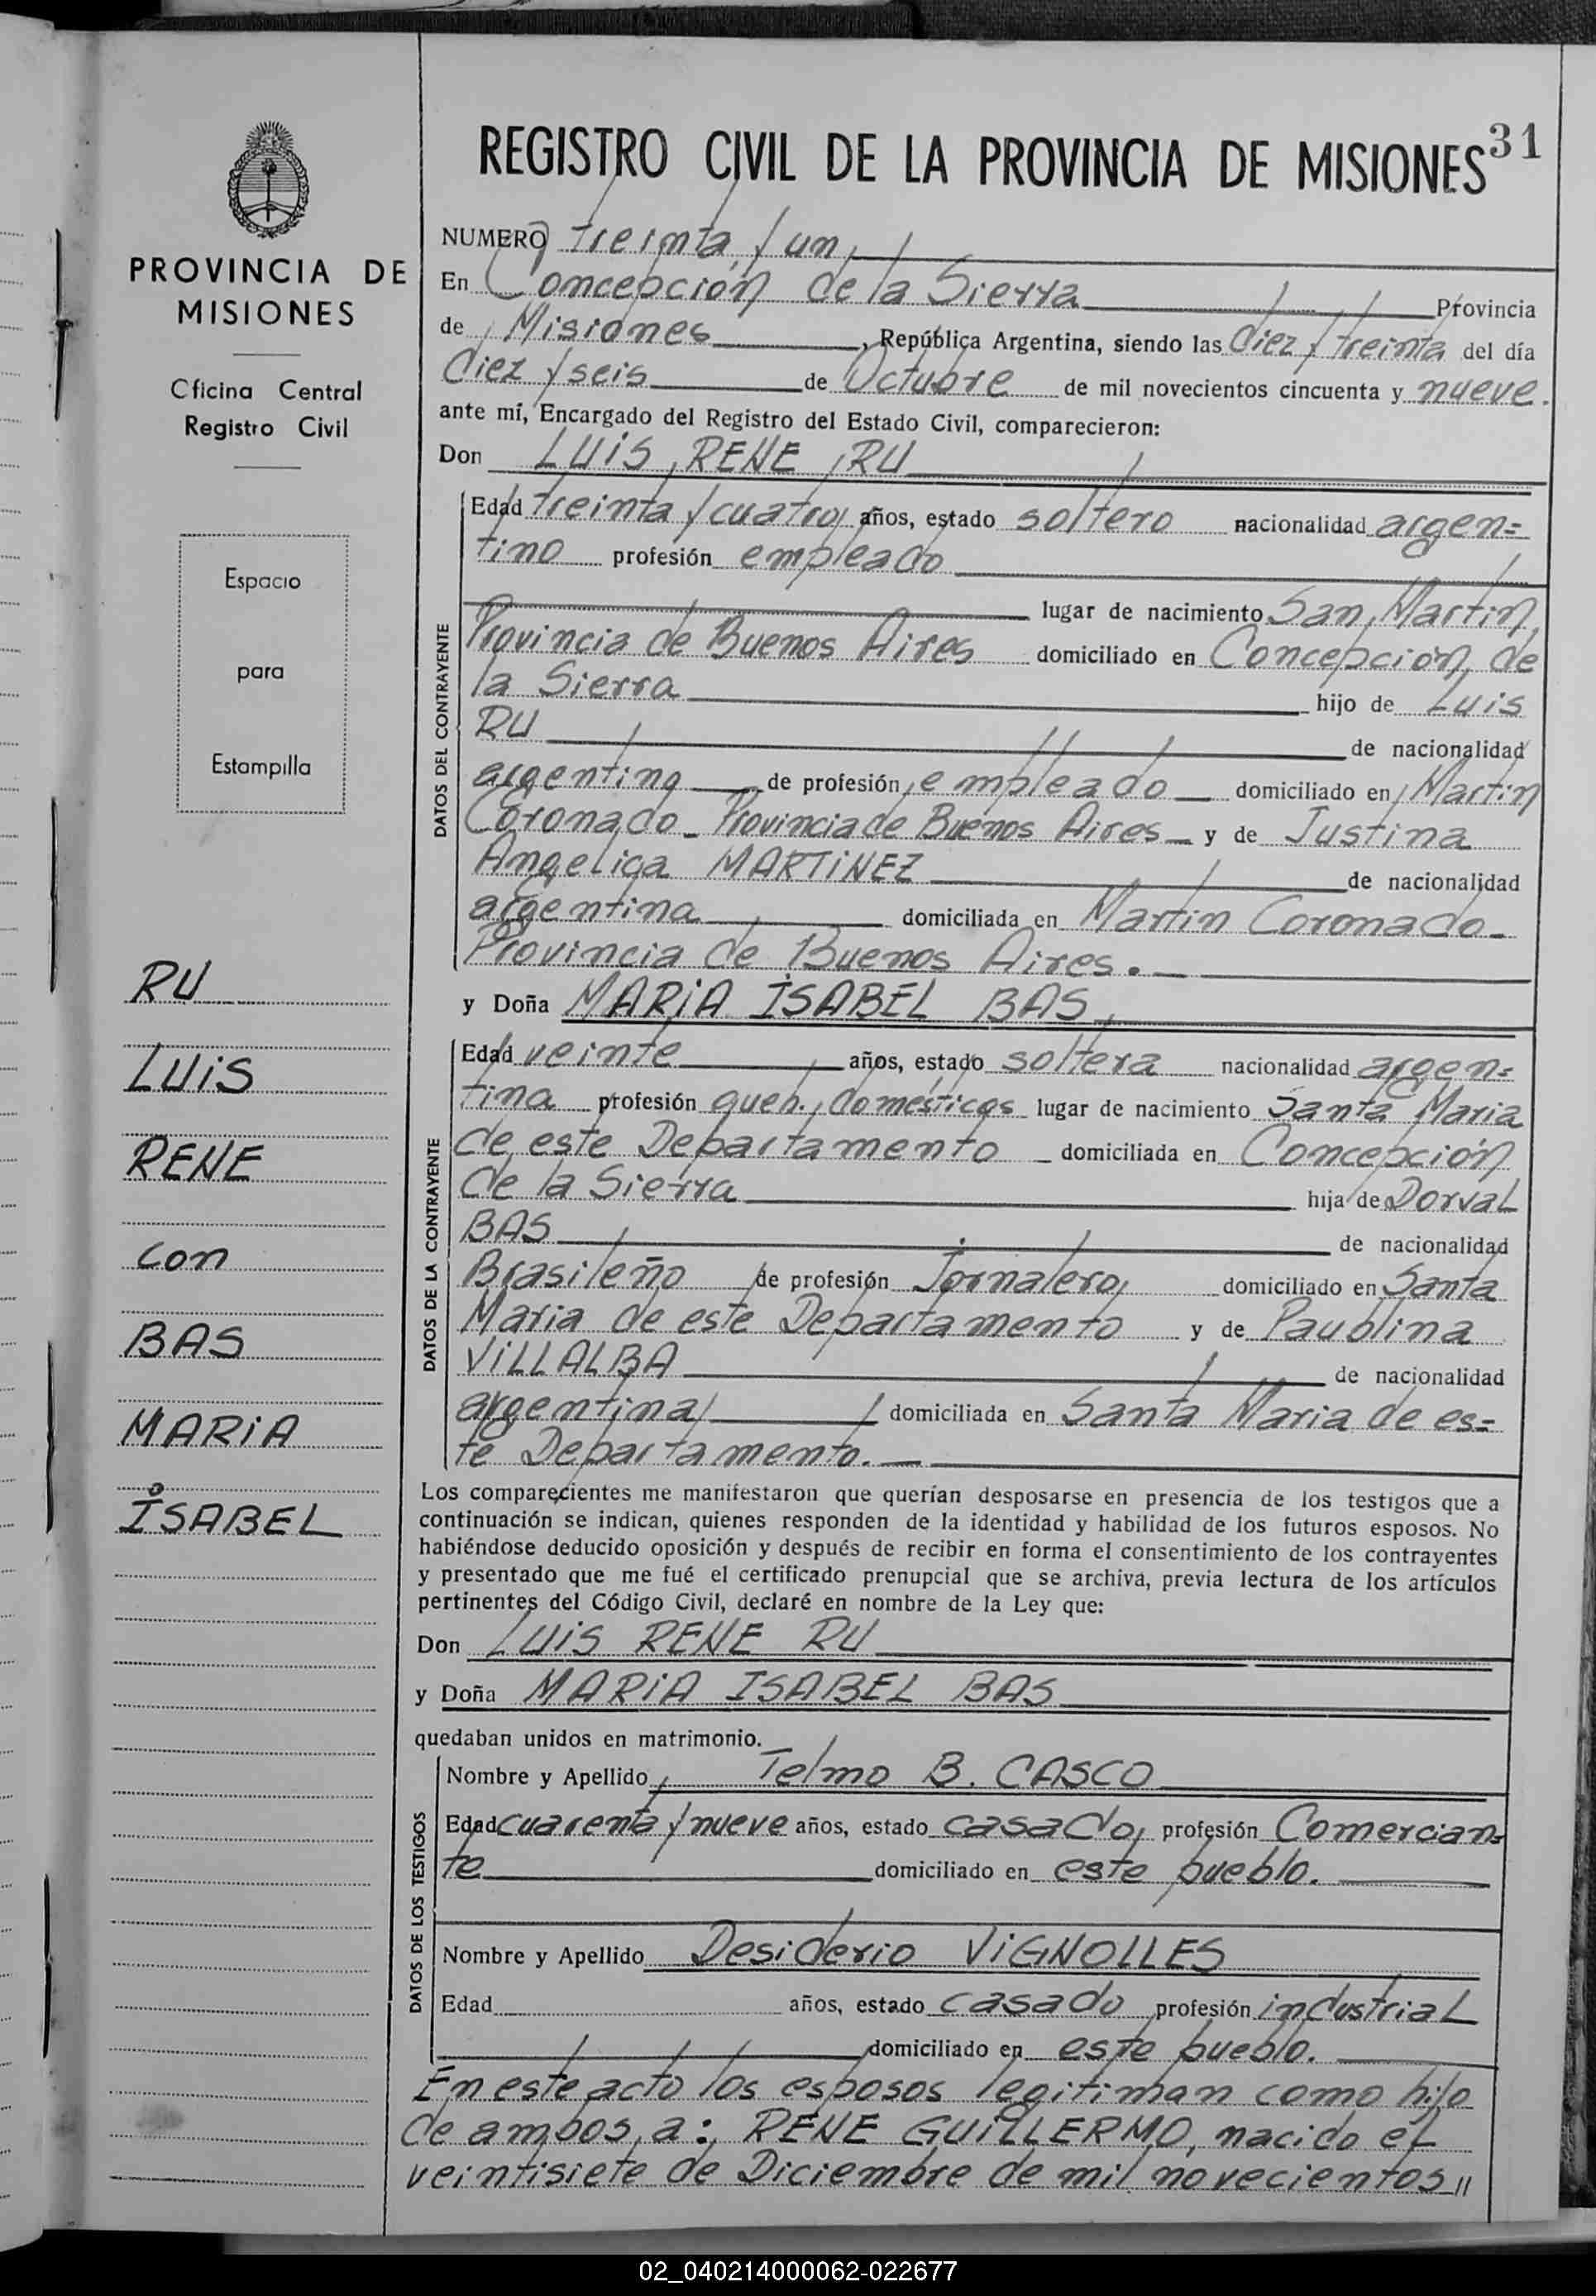 REGISTRO CIVIL DE LA PROVINCIA DE MISIONES 31
PROVINCIA DE
MISIONES
Oficina Central
Registro Civil
Espacio
para
Estampilla
RU
LUIS
RENE
con
BAS
MARIA
ISABEL
NUMERO treinta y un
En Concepción de la Sierra Provincia
de Misiones, República Argentina, siendo las diez y treinta del día
diez y seis de Octubre de mil novecientos cincuenta y nueve.
ante mí, Encargado del Registro del Estado Civil, comparecieron:
Don LUIS RENE RU
DATOS DEL CONTRAYENTE
Edad treinta y cuatro años, estado soltero nacionalidad argen=
tino profesión empleado
lugar de nacimiento San Martin,
Provincia de Buenos Aires domiciliado en Concepción de
la Sierra hijo de Luis
RU de nacionalidad
argentino de profesión empleado domiciliado en Martin
Coronado - Provincia de Buenos Aires - y de Justina
Angeliga MARTINEZ de nacionalidad
argentina domiciliada en Martin Coronado -
Provincia de Buenos Aires. -
y Doña MARIA ISABEL BAS
DATOS DE LA CONTRAYENTE
Edad veinte años, estado soltera nacionalidad argen=
tina profesión queh. domésticos lugar de nacimiento Santa Maria
de este Departamento - domiciliada en Concepción
de la Sierra hija de Dorval
BAS de nacionalidad
Brasileño de profesión Jornalero domiciliado en Santa
Maria de este Departamento y de Paublina
VILLALBA de nacionalidad
argentina domiciliada en Santa Maria de es=
te Departamento. -
Los comparecientes me manifestaron que querían desposarse en presencia de los testigos que a
continuación se indican, quienes responden de la identidad y habilidad de los futuros esposos. No
habiéndose deducido oposición y después de recibir en forma el consentimiento de los contrayentes
y presentado que me fué el certificado prenupcial que se archiva, previa lectura de los artículos
pertinentes del Código Civil, declaré en nombre de la Ley que:
Don LUIS RENE RU
y Doña MARIA ISABEL BAS
quedaban unidos en matrimonio.
DATOS DE LOS TESTIGOS
Nombre y Apellido Telmo B. CASCO
Edad cuarenta y nueve años, estado casado profesión Comercian=
te domiciliado en este pueblo.
Nombre y Apellido Desiderio VIGNOLLES
Edad años, estado casado profesión industrial
domiciliado en este pueblo.
En este acto los esposos legitiman como hijo
de ambos, a: RENE GUILLERMO, nacido el
veintisiete de Diciembre de mil novecientos "
02_040214000062-022677